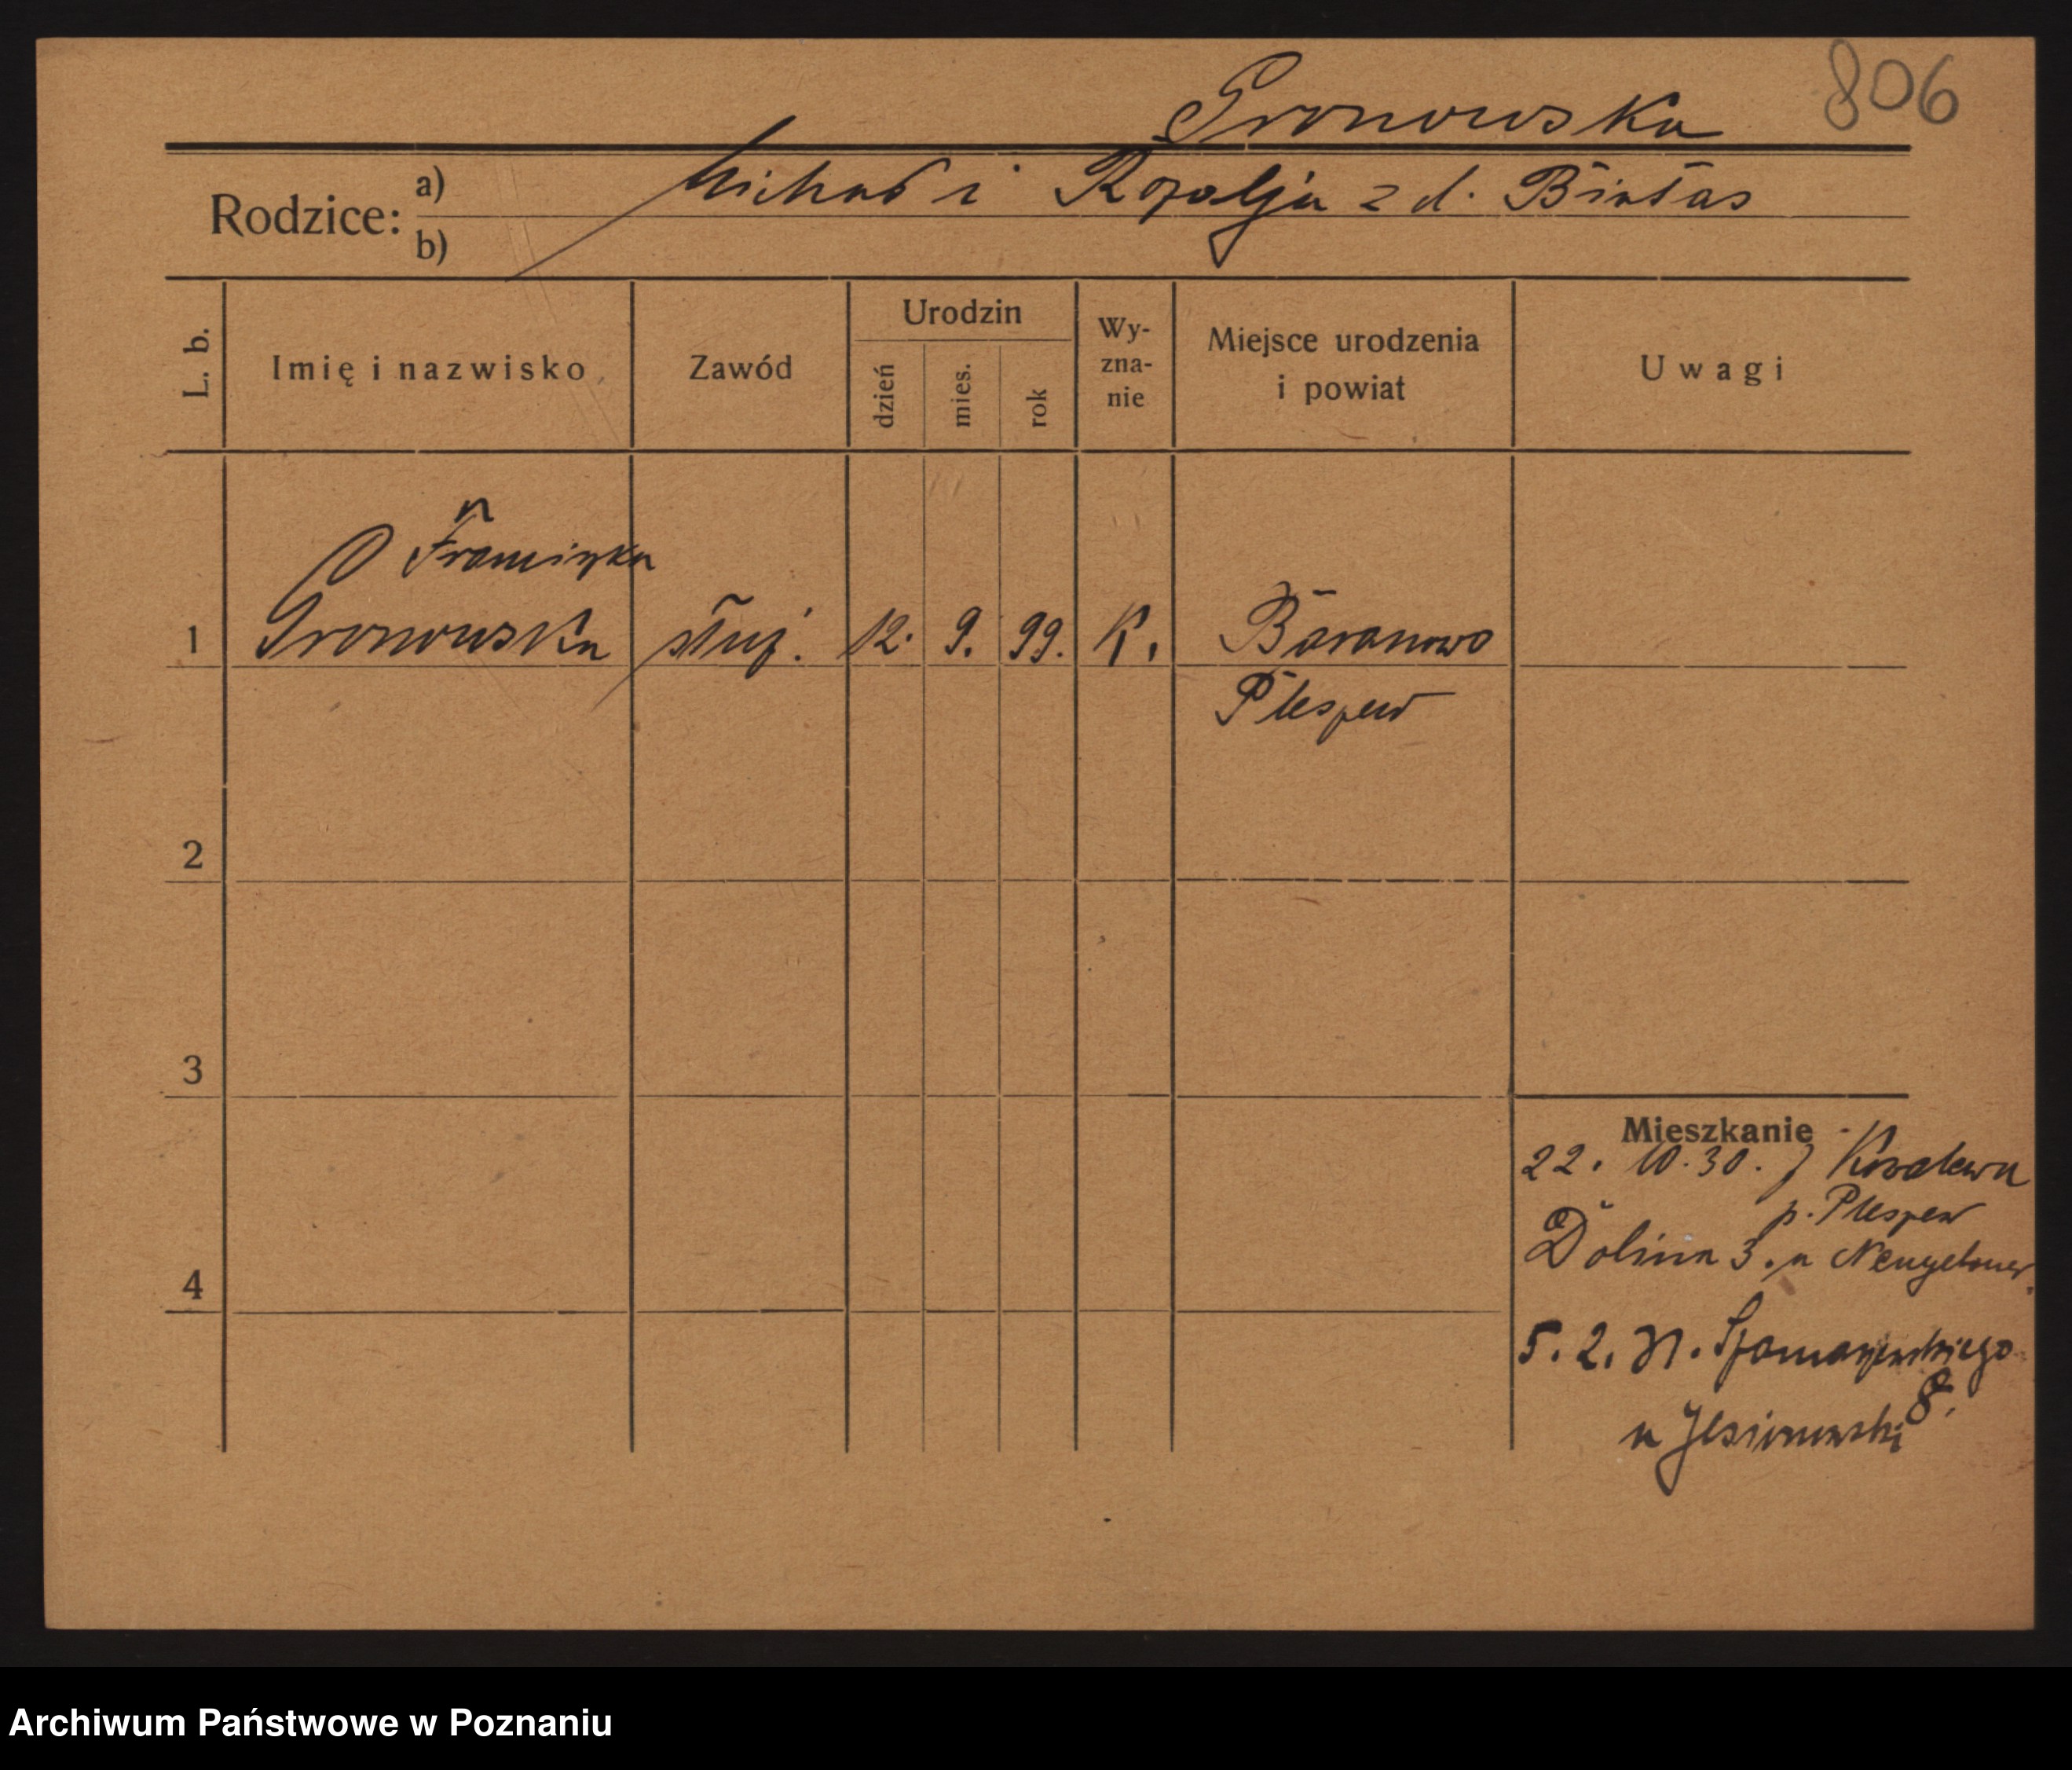 806
Gronowska
Rodzice: a) Michał i Rozalja z d. Białas
b)
L. b. Imię i nazwisko Zawód Urodzin dzień mies. rok Wy-zna-nie Miejsce urodzenia i powiat Uwagi
Franciszka
1 Gronowska służ. 12. 9. 99. K. Baranowo
Pleszew
2
3
4
Mieszkanie
22. 10. 30. z Kowalewa
p. Pleszew
Dolina 3. u
5. 2. 31.
8.
u
Archiwum Państwowe w Poznaniu